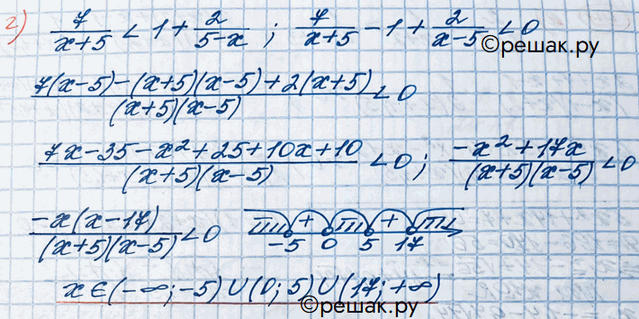 2) 7/(x+5) < 1 + 2/(5-x) ; 7/(x+5) - 1 + 2/(x-5) < 0
©решак.ру
(7(x-5)-(x+5)(x-5)+2(x+5))/((x+5)(x-5)) < 0
(7x-35-x²+25+10x+10)/((x+5)(x-5)) < 0 ; (-x²+17x)/((x+5)(x-5)) < 0
(-x(x-17))/((x+5)(x-5)) < 0 + + -5 0 5 17
x∈(-∞;-5)∪(0;5)∪(17;+∞)
©решак.ру